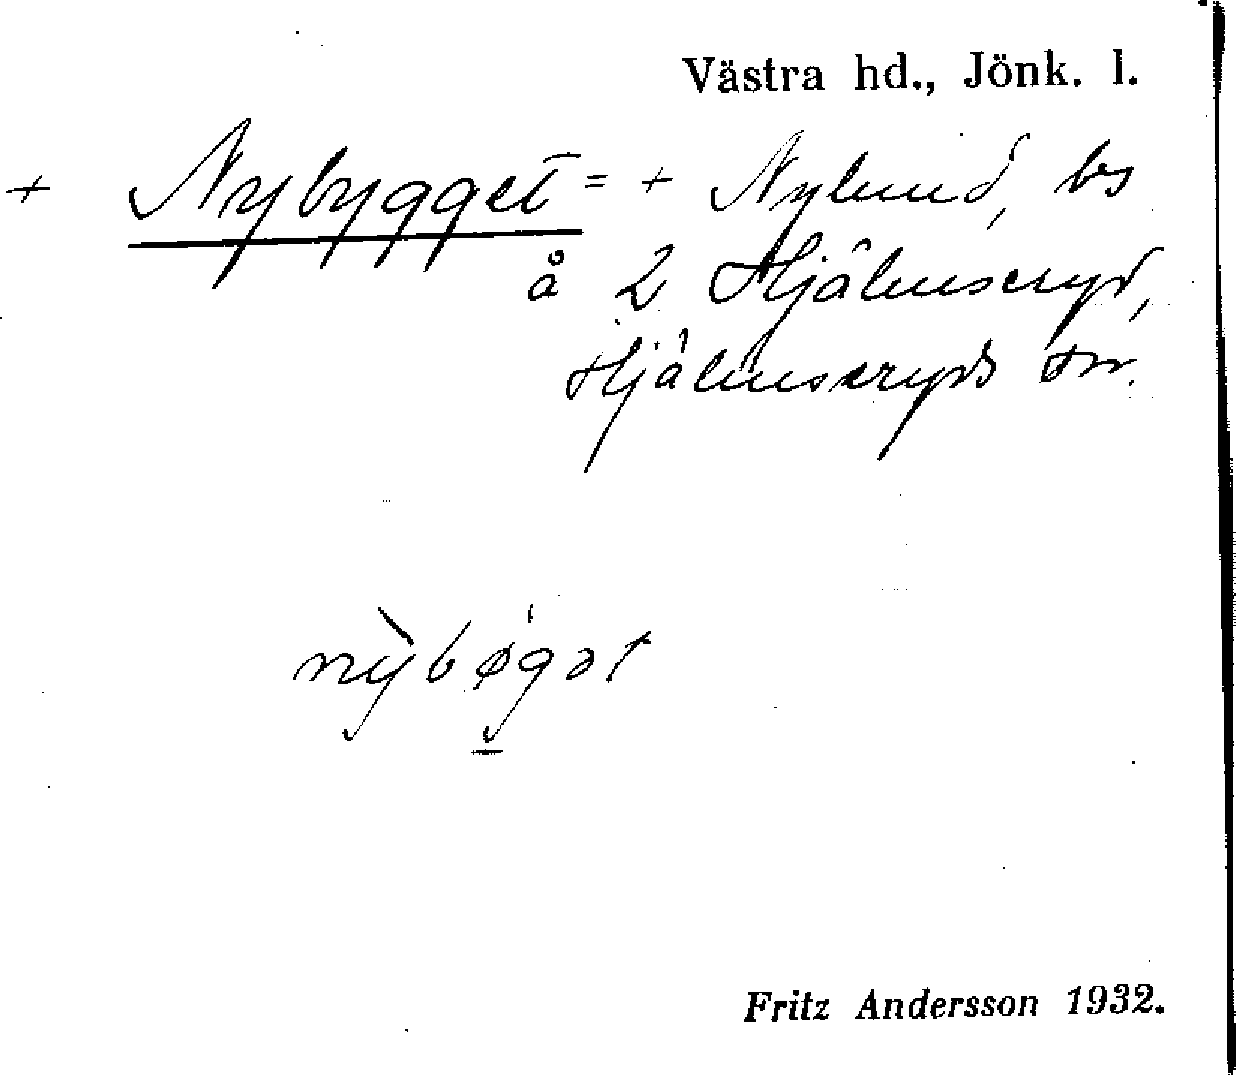 Västra hd., Jönk. l.
+ Nybygget = + Nylund, bs
å 2 Hjälmseryd,
Hjälmseryds sn.
nỳbøgət
Fritz Andersson 1932.